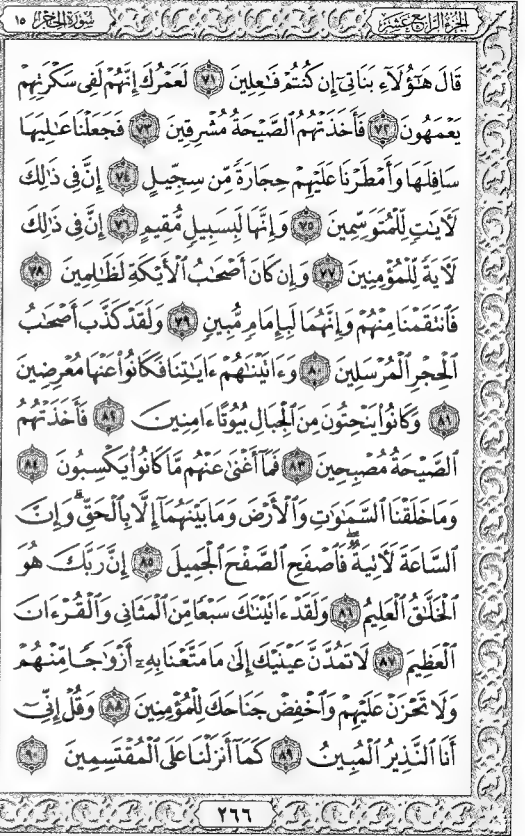 الجزء الرابع عشر
سورة الحجر ١٥
قَالَ هَٰٓؤُلَآءِ بَنَاتِىٓ إِن كُنتُمْ فَٰعِلِينَ ٧١ لَعَمْرُكَ إِنَّهُمْ لَفِى سَكْرَتِهِمْ
يَعْمَهُونَ ٧٢ فَأَخَذَتْهُمُ ٱلصَّيْحَةُ مُشْرِقِينَ ٧٣ فَجَعَلْنَا عَٰلِيَهَا
سَافِلَهَا وَأَمْطَرْنَا عَلَيْهِمْ حِجَارَةً مِّن سِجِّيلٍ ٧٤ إِنَّ فِى ذَٰلِكَ
لَءَايَٰتٍ لِّلْمُتَوَسِّمِينَ ٧٥ وَإِنَّهَا لَبِسَبِيلٍ مُّقِيمٍ ٧٦ إِنَّ فِى ذَٰلِكَ
لَءَايَةً لِّلْمُؤْمِنِينَ ٧٧ وَإِن كَانَ أَصْحَٰبُ ٱلْأَيْكَةِ لَظَٰلِمِينَ ٧٨
فَٱنتَقَمْنَا مِنْهُمْ وَإِنَّهُمَا لَبِإِمَامٍ مُّبِينٍ ٧٩ وَلَقَدْ كَذَّبَ أَصْحَٰبُ
ٱلْحِجْرِ ٱلْمُرْسَلِينَ ٨٠ وَءَاتَيْنَٰهُمْ ءَايَٰتِنَا فَكَانُوا۟ عَنْهَا مُعْرِضِينَ
٨١ وَكَانُوا۟ يَنْحِتُونَ مِنَ ٱلْجِبَالِ بُيُوتًا ءَامِنِينَ ٨٢ فَأَخَذَتْهُمُ
ٱلصَّيْحَةُ مُصْبِحِينَ ٨٣ فَمَآ أَغْنَىٰ عَنْهُم مَّا كَانُوا۟ يَكْسِبُونَ ٨٤
وَمَا خَلَقْنَا ٱلسَّمَٰوَٰتِ وَٱلْأَرْضَ وَمَا بَيْنَهُمَآ إِلَّا بِٱلْحَقِّ ۗ وَإِنَّ
ٱلسَّاعَةَ لَءَاتِيَةٌ ۖ فَٱصْفَحِ ٱلصَّفْحَ ٱلْجَمِيلَ ٨٥ إِنَّ رَبَّكَ هُوَ
ٱلْخَلَّٰقُ ٱلْعَلِيمُ ٨٦ وَلَقَدْ ءَاتَيْنَٰكَ سَبْعًا مِّنَ ٱلْمَثَانِى وَٱلْقُرْءَانَ
ٱلْعَظِيمَ ٨٧ لَا تَمُدَّنَّ عَيْنَيْكَ إِلَىٰ مَا مَتَّعْنَا بِهِۦٓ أَزْوَٰجًا مِّنْهُمْ
وَلَا تَحْزَنْ عَلَيْهِمْ وَٱخْفِضْ جَنَاحَكَ لِلْمُؤْمِنِينَ ٨٨ وَقُلْ إِنِّىٓ
أَنَا ٱلنَّذِيرُ ٱلْمُبِينُ ٨٩ كَمَآ أَنزَلْنَا عَلَى ٱلْمُقْتَسِمِينَ ٩٠
٢٦٦